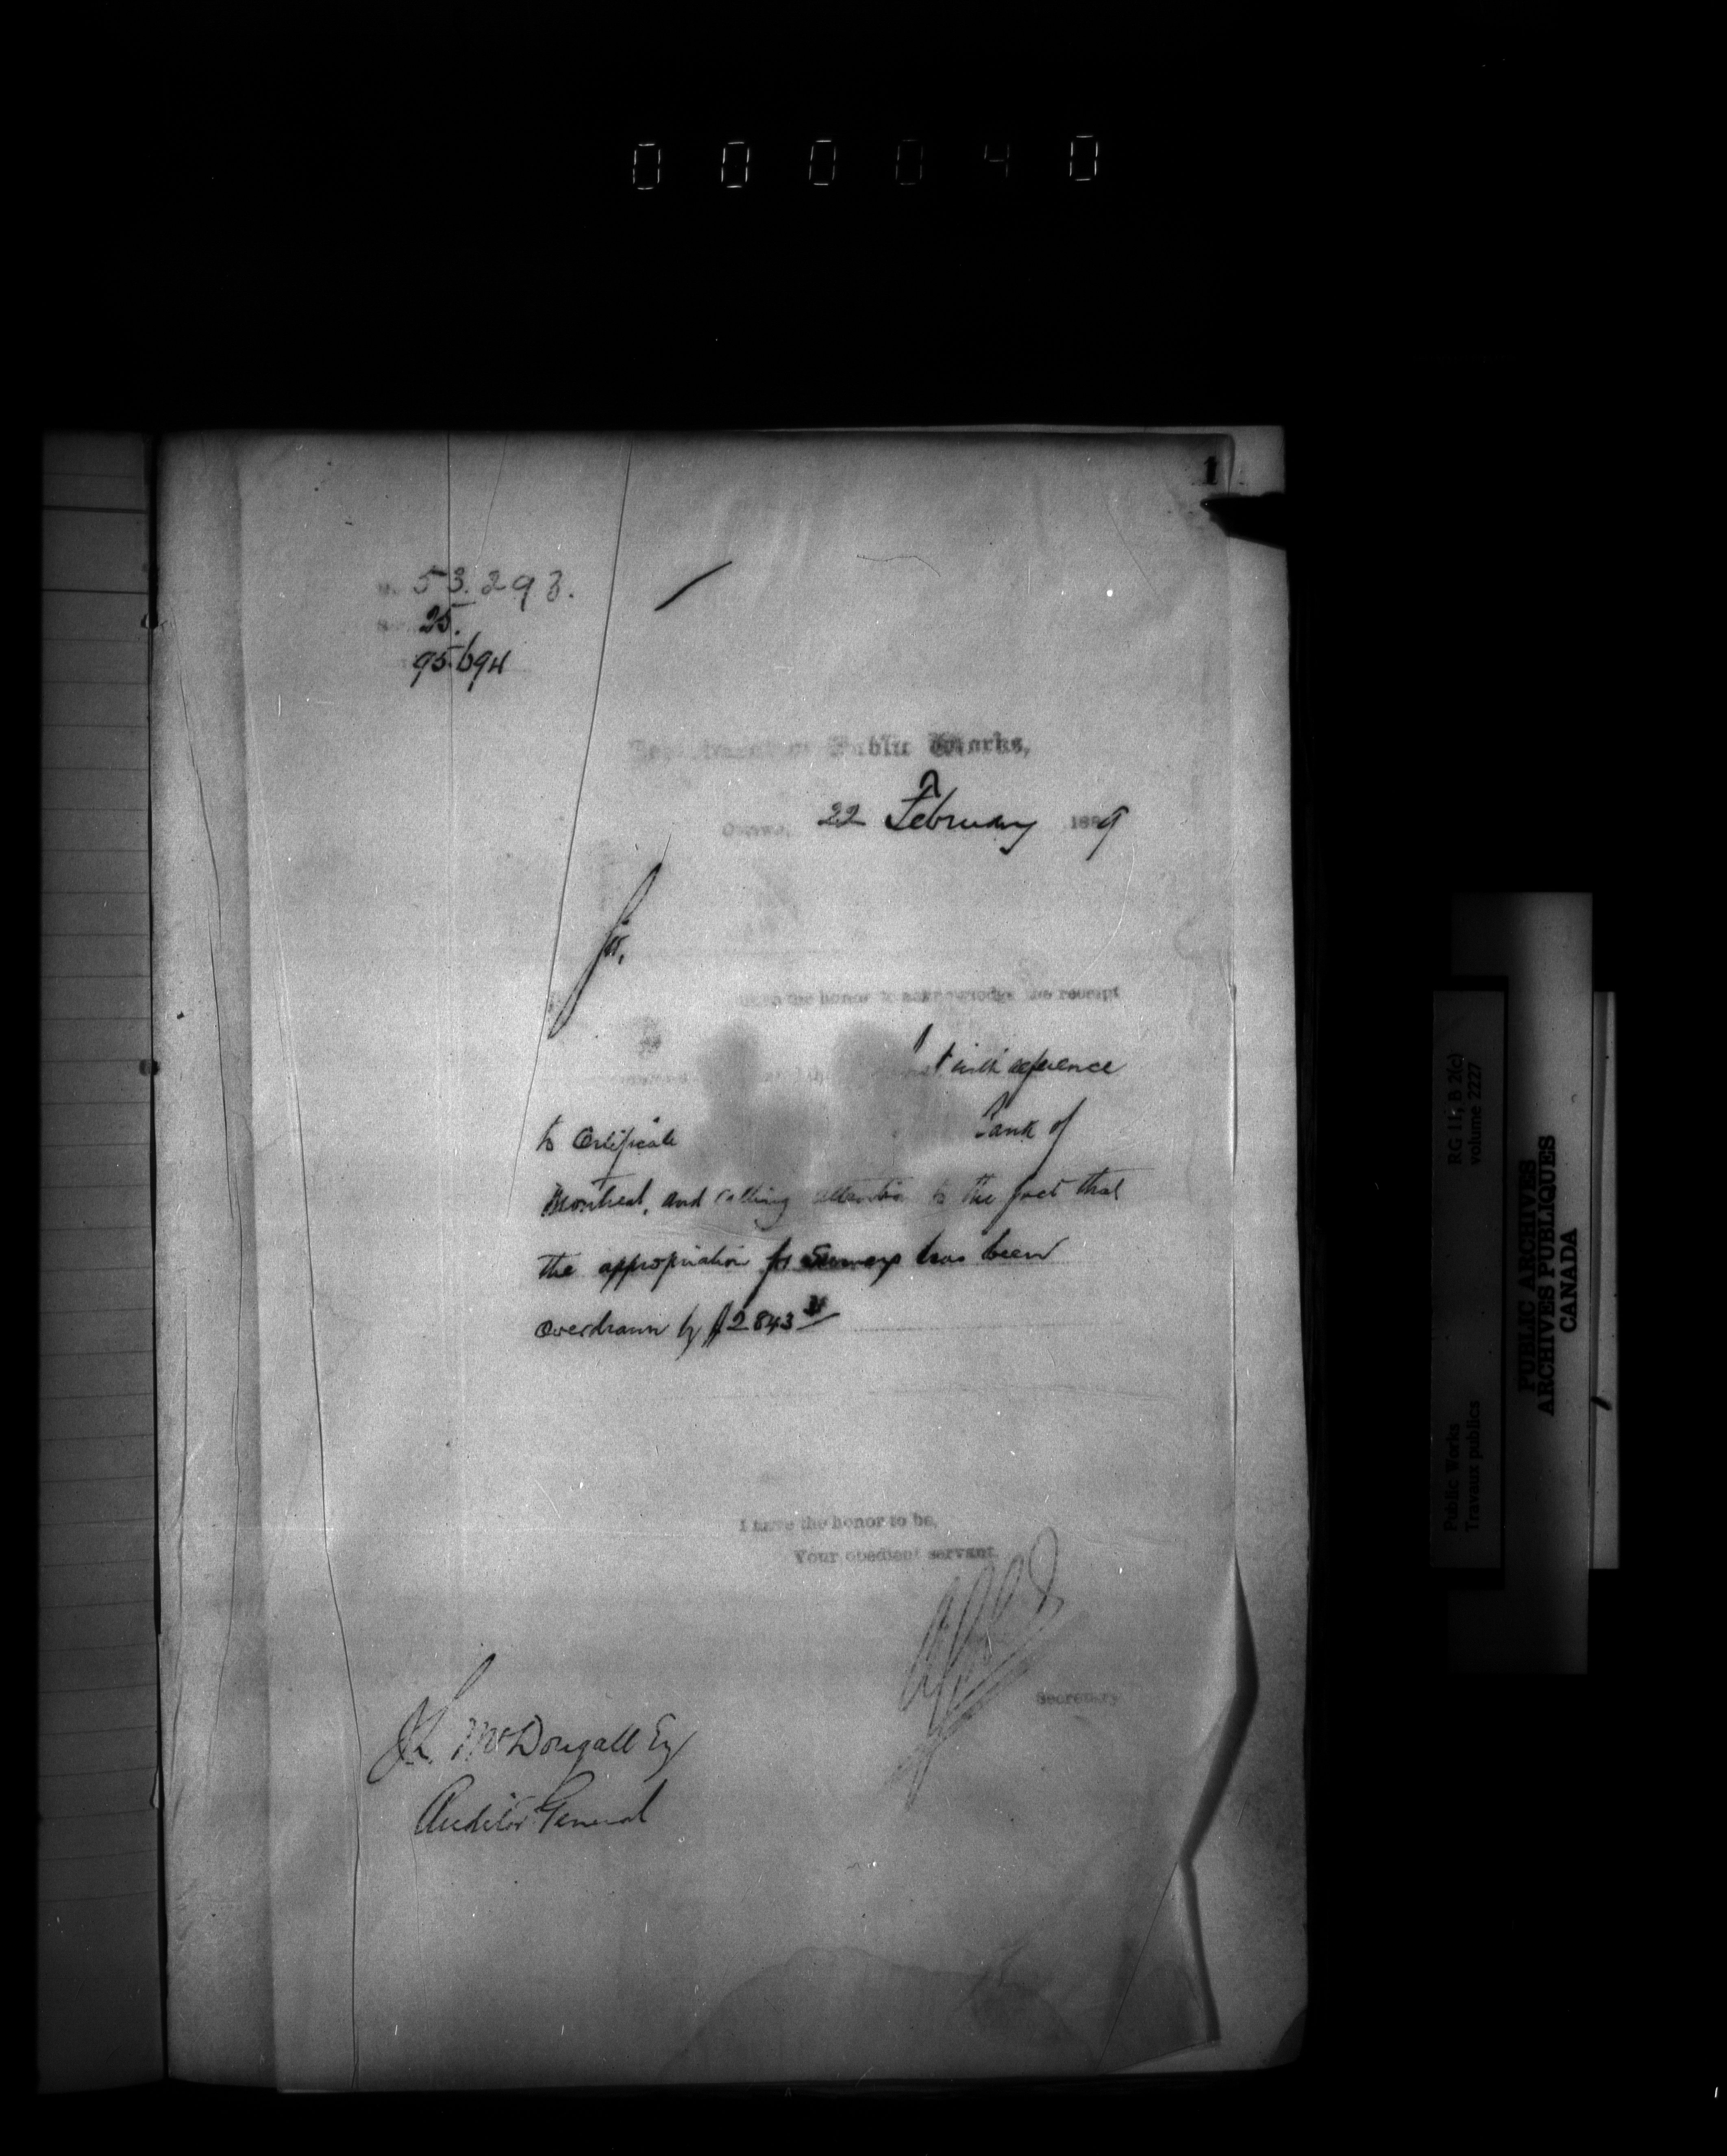 000040
1
53.293.
25.
95694
Department of Public Works,
Ottawa, 22 February 1889
Sir,
have the honor to acknowledge the receipt
with reference
to Certificate Bank of
Montreal, and calling attention to the fact that
the appropriation for has been
overdrawn by $2843
I have the honor to be,
Your obedient servant,
Secretary
J.L. McDougall Esq
Auditor General
RG 11, B 2(c)
volume 2227
Public Works
Travaux publics
PUBLIC ARCHIVES
ARCHIVES PUBLIQUES
CANADA